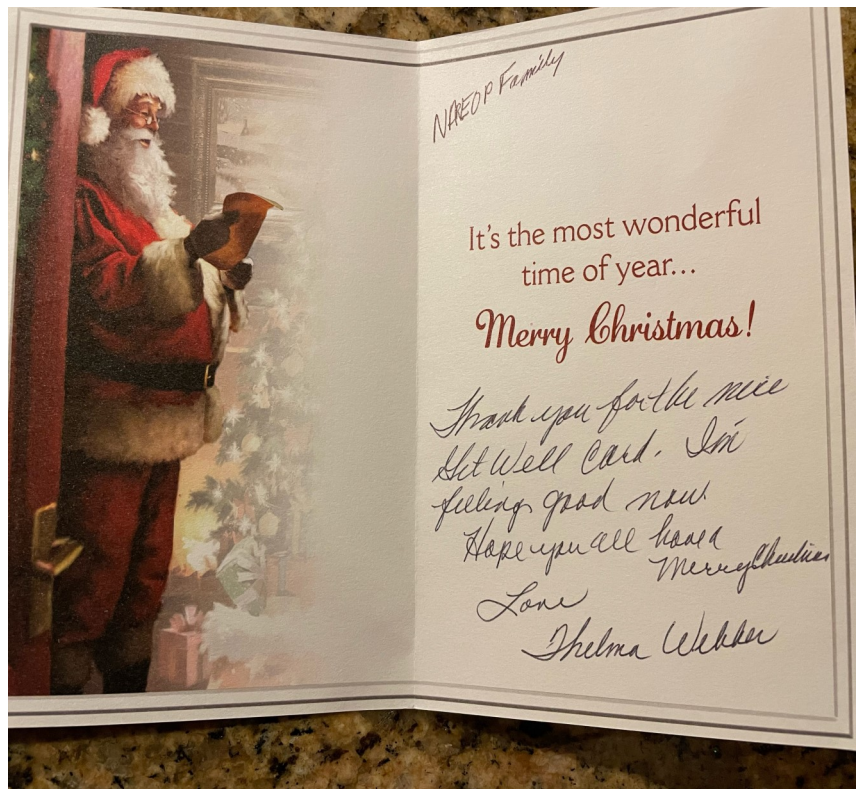 NAREOP Family
It's the most wonderful
time of year...
Merry Christmas!
Thank you for the nice
Get Well Card. I'm
feeling good now.
Hope you all have a
Merry Christmas
Love
Thelma Webber